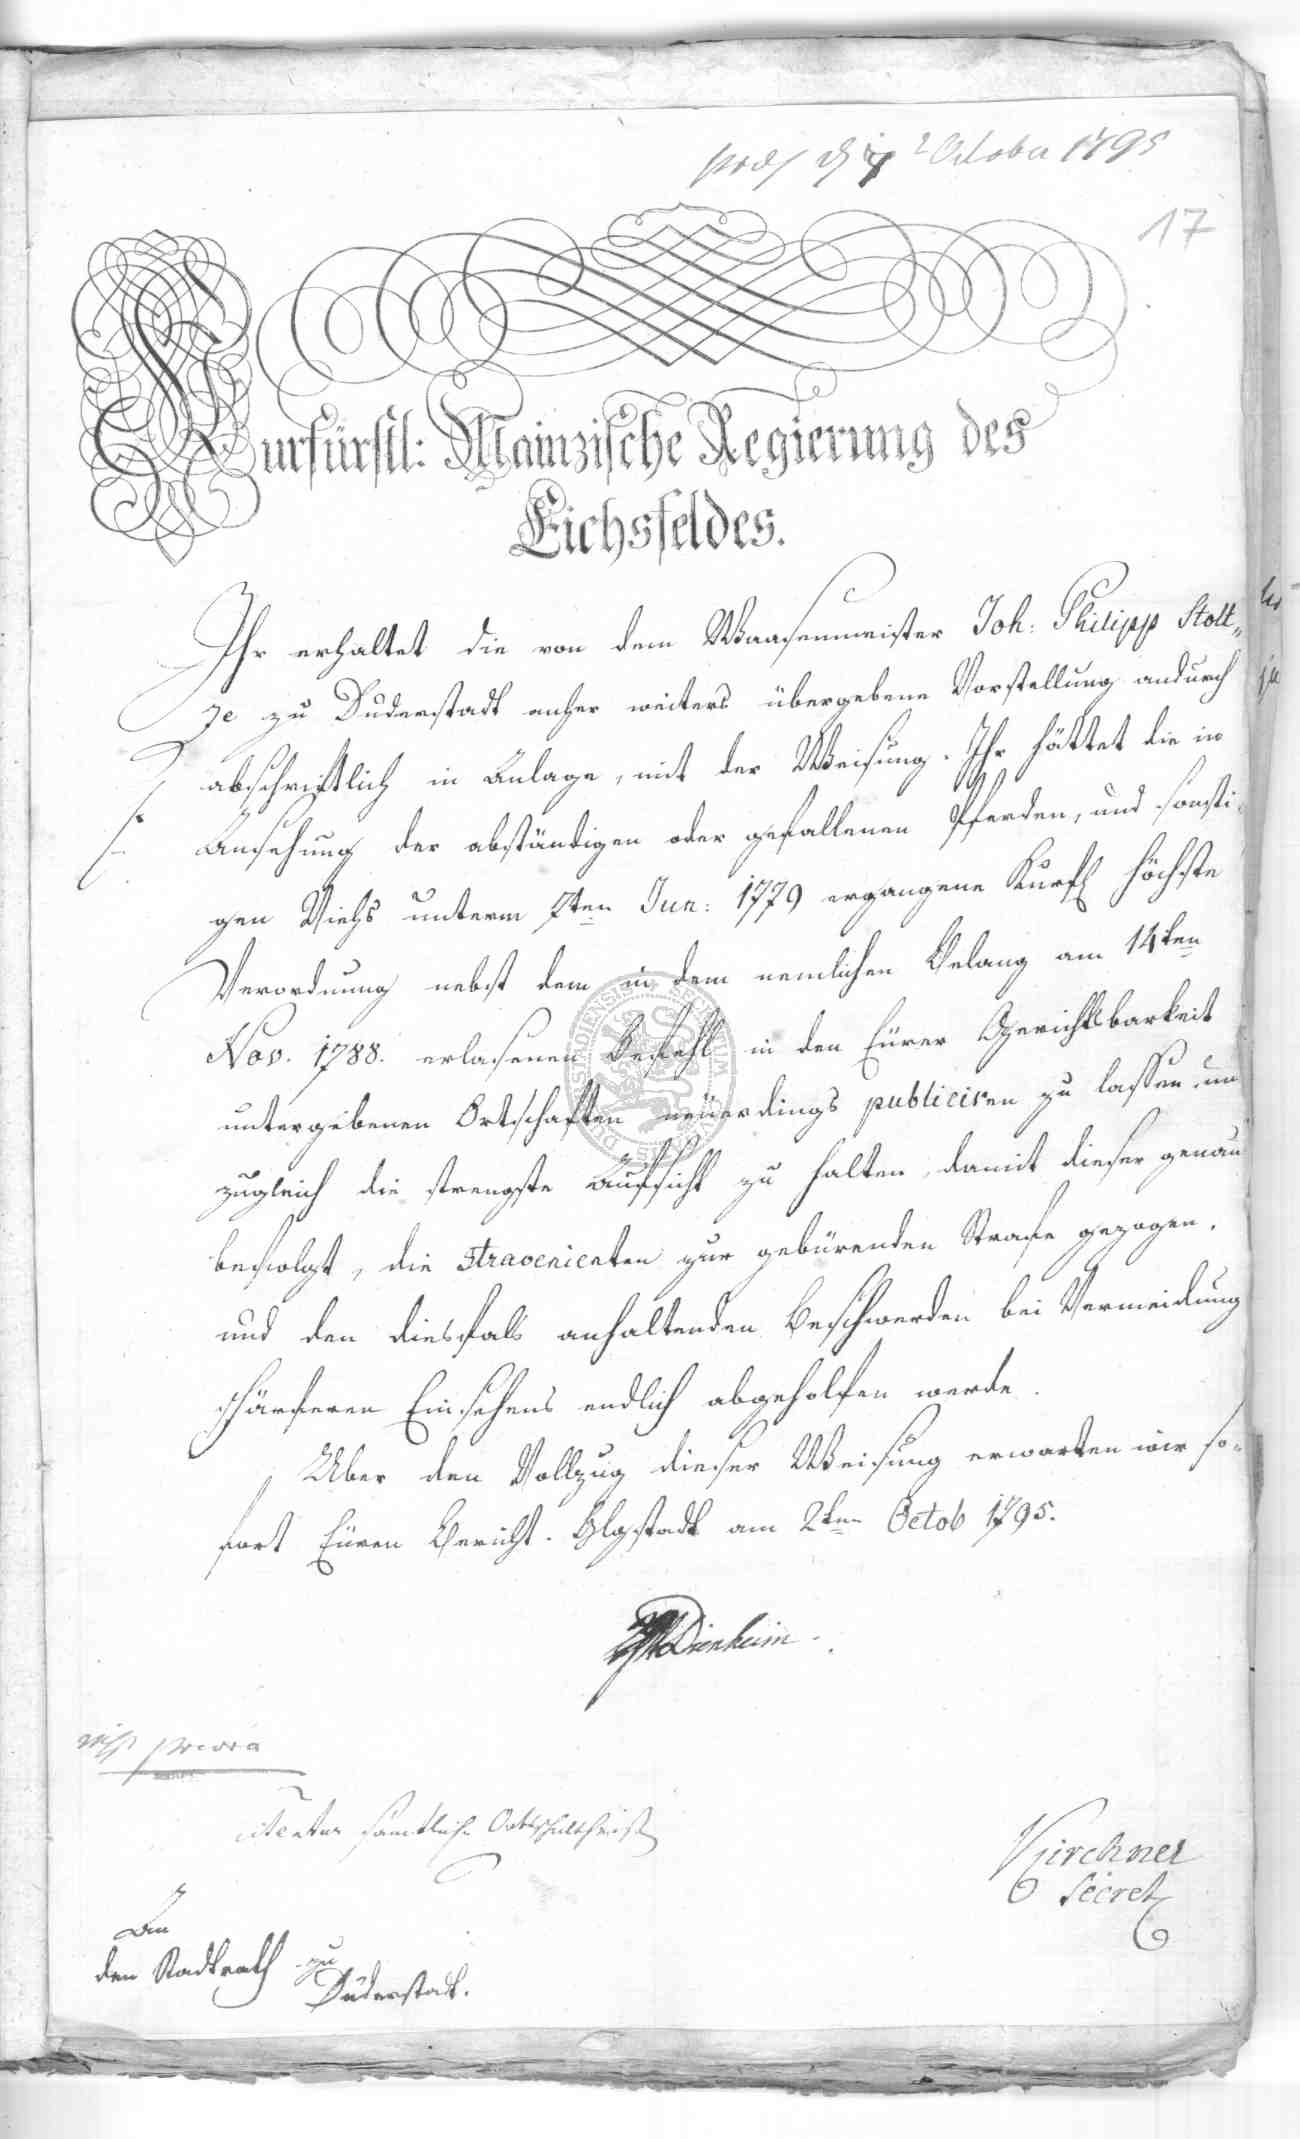 October 1795
17
Kurfürstl: Mainzische Regierung des
Eichsfeldes.
Ihr erhaltet die von dem Waasenmeister Joh: Philipp Stolt„
ze zu Duderstadt anher weiters übergebene Vorstellung andurch
abschriftlich in Anlage, mit der Weisung. Ihr hättet die in
Ansehung der abständigen oder gefallenen Pferden, und sonsti-
gen Viehs unterm 7ten Jun: 1779 ergangene Kurfl höchste
Verordnung nebst dem in dem nemlichen Belang am 14ten
Nov. 1788. erlasenen Befehl in den Eürer Gerichtsbarkeit
untergebenen Ortschaften neüerdings publiciren zu lassen, un
zugleich die strengste Aufsicht zu halten, damit dieser genau
befolgt, die Ctravenienten zur gebürenden Strafe gezogen,
und den diesfals anhaltenden Beschwerden bei Vermeidung
schärferen Einsehens endlich abgeholfen werde.
Uber den Vollzug dieser Weisung erwarten wir so-
fort Eüren Bericht. Hlgstadt am 2ten Octob 1795.
Dienheim
citentur sämtliche Ortsschultheiß
Kirchner
Secret
An
den Stadtrath zu
Duderstadt.